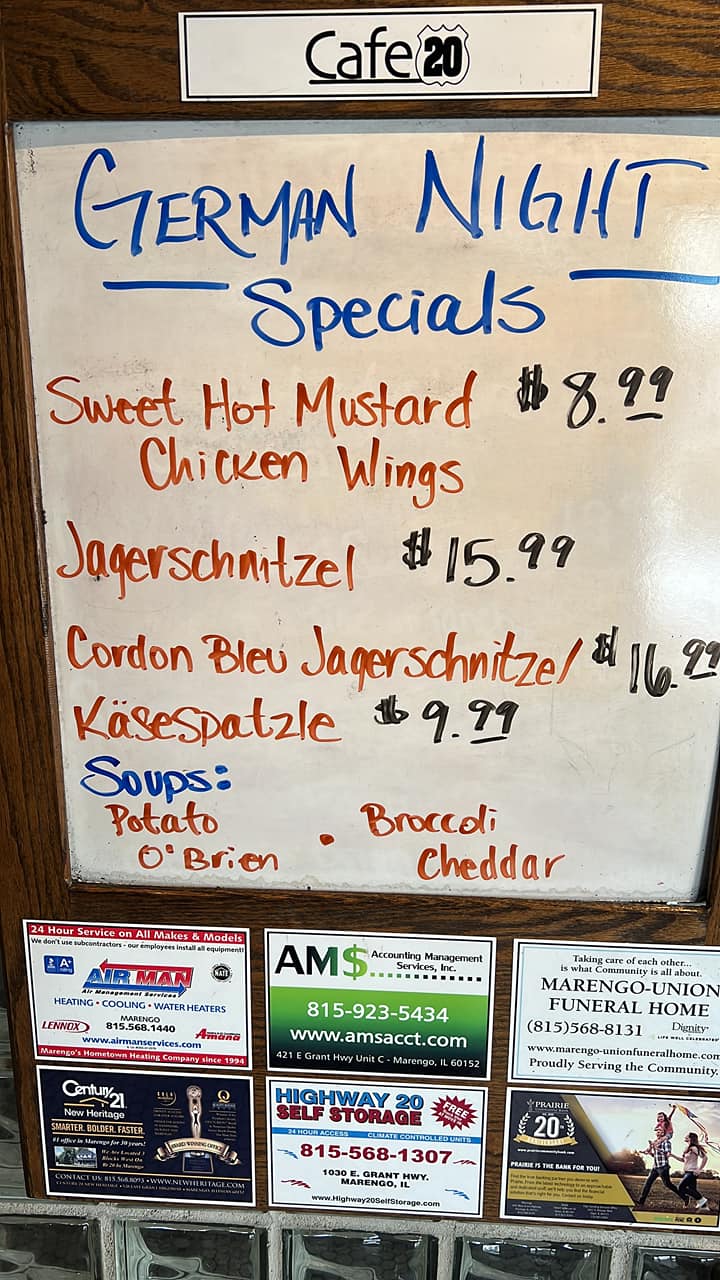 Cafe 20
GERMAN NIGHT
Specials
Sweet Hot Mustard $8.99
Chicken Wings
Jagerschnitzel $15.99
Cordon Bleu Jagerschnitzel $16.99
Käsespatzle $9.99
Soups:
Potato • Broccoli
O'Brien Cheddar
24 Hour Service on All Makes & Models
We don't use subcontractors - our employees install all equipment!
A+
AIR MAN
Air Management Services
NATE
HEATING • COOLING • WATER HEATERS
MARENGO
LENNOX 815.568.1440 Amana
www.airmanservices.com
Marengo's Hometown Heating Company since 1994
AM$ Accounting Management
Services, Inc.
815-923-5434
www.amsacct.com
421 E Grant Hwy Unit C - Marengo, IL 60152
Taking care of each other...
is what Community is all about.
MARENGO-UNION
FUNERAL HOME
(815)568-8131 Dignity
LIFE WELL CELEBRATED
www.marengo-unionfuneralhome.com
Proudly Serving the Community.
Century 21
New Heritage
SMARTER. BOLDER. FASTER.
#1 office in Marengo for 30 years!
We Are Located 3
Blocks West On
Rt 20 In Marengo
AWARD WINNING OFFICE
CONTACT US: 815.568.8093 • WWW.NEWHERITAGE.COM
HIGHWAY 20
SELF STORAGE
FREE
24 HOUR ACCESS CLIMATE CONTROLLED UNITS
815-568-1307
1030 E. GRANT HWY.
MARENGO, IL
www.Highway20SelfStorage.com
PRAIRIE
20
PRAIRIE IS THE BANK FOR YOU!